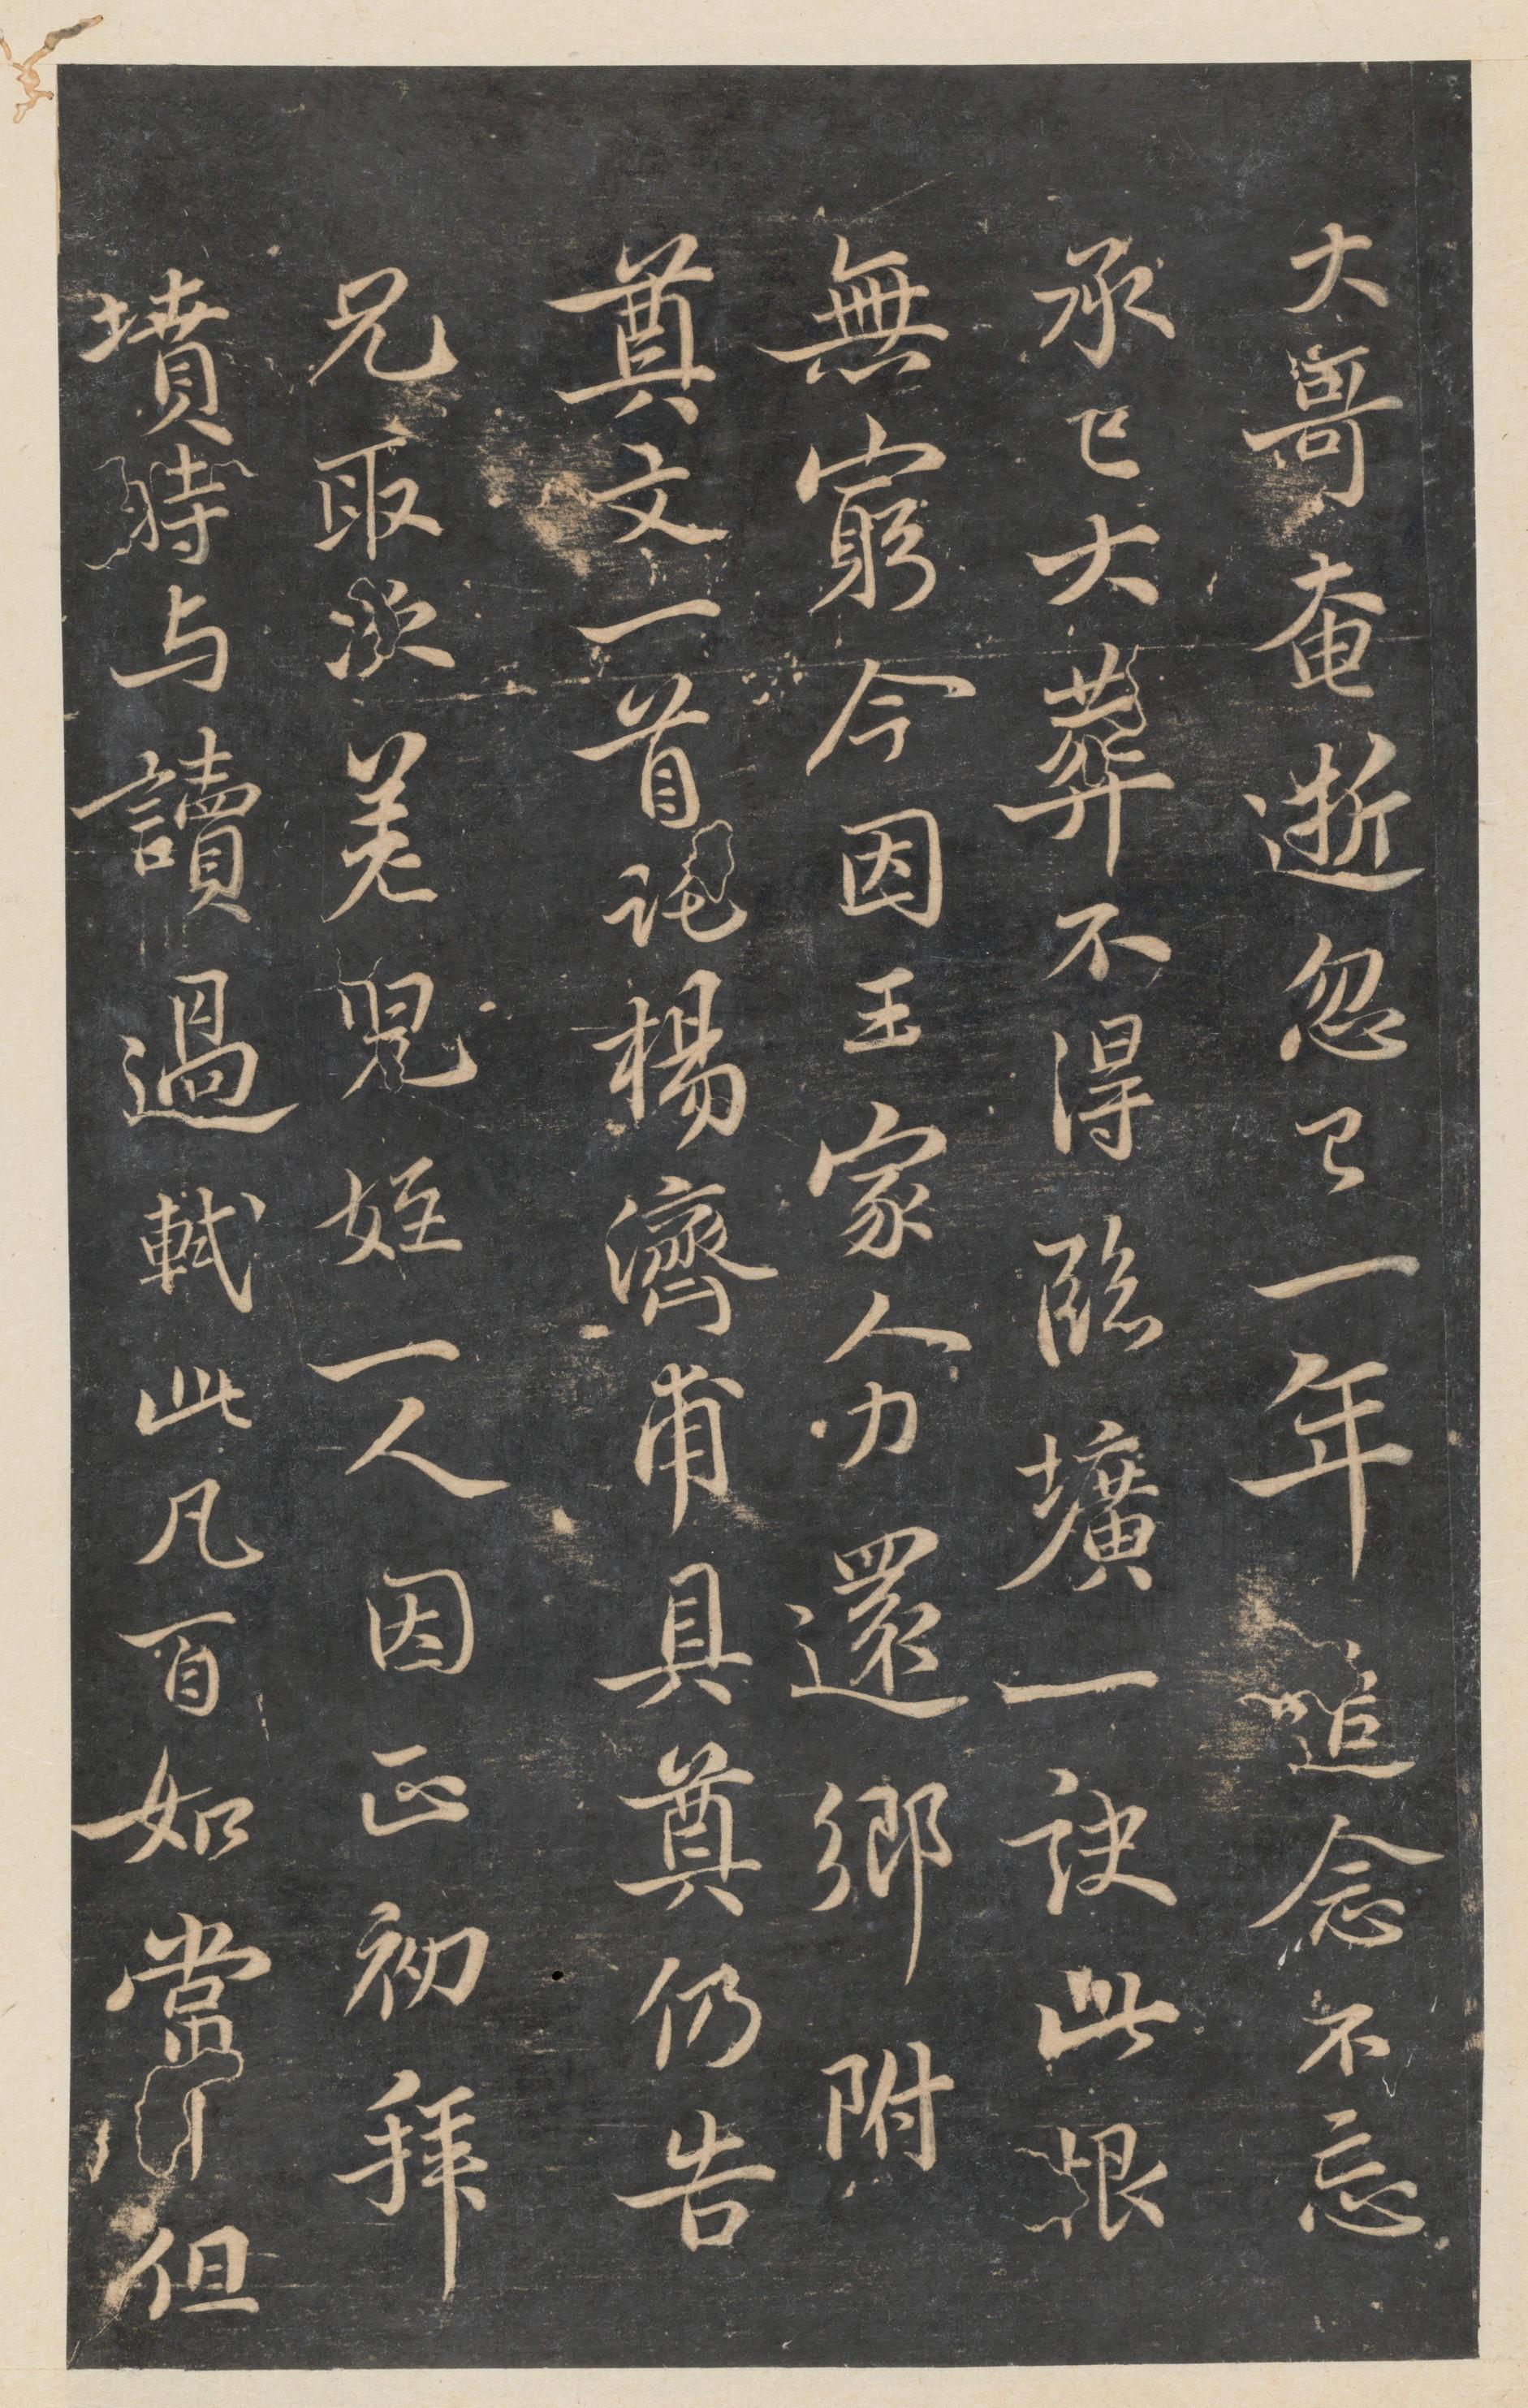 大哥奄逝忽已一年追念不忘
承已大葬不得臨壙一訣此恨
無窮今因王家人力還鄉附
奠文一首託楊濟甫具奠仍告
兄取次差兒姪一人因正初拜
墳時与讀過軾此凡百如常但